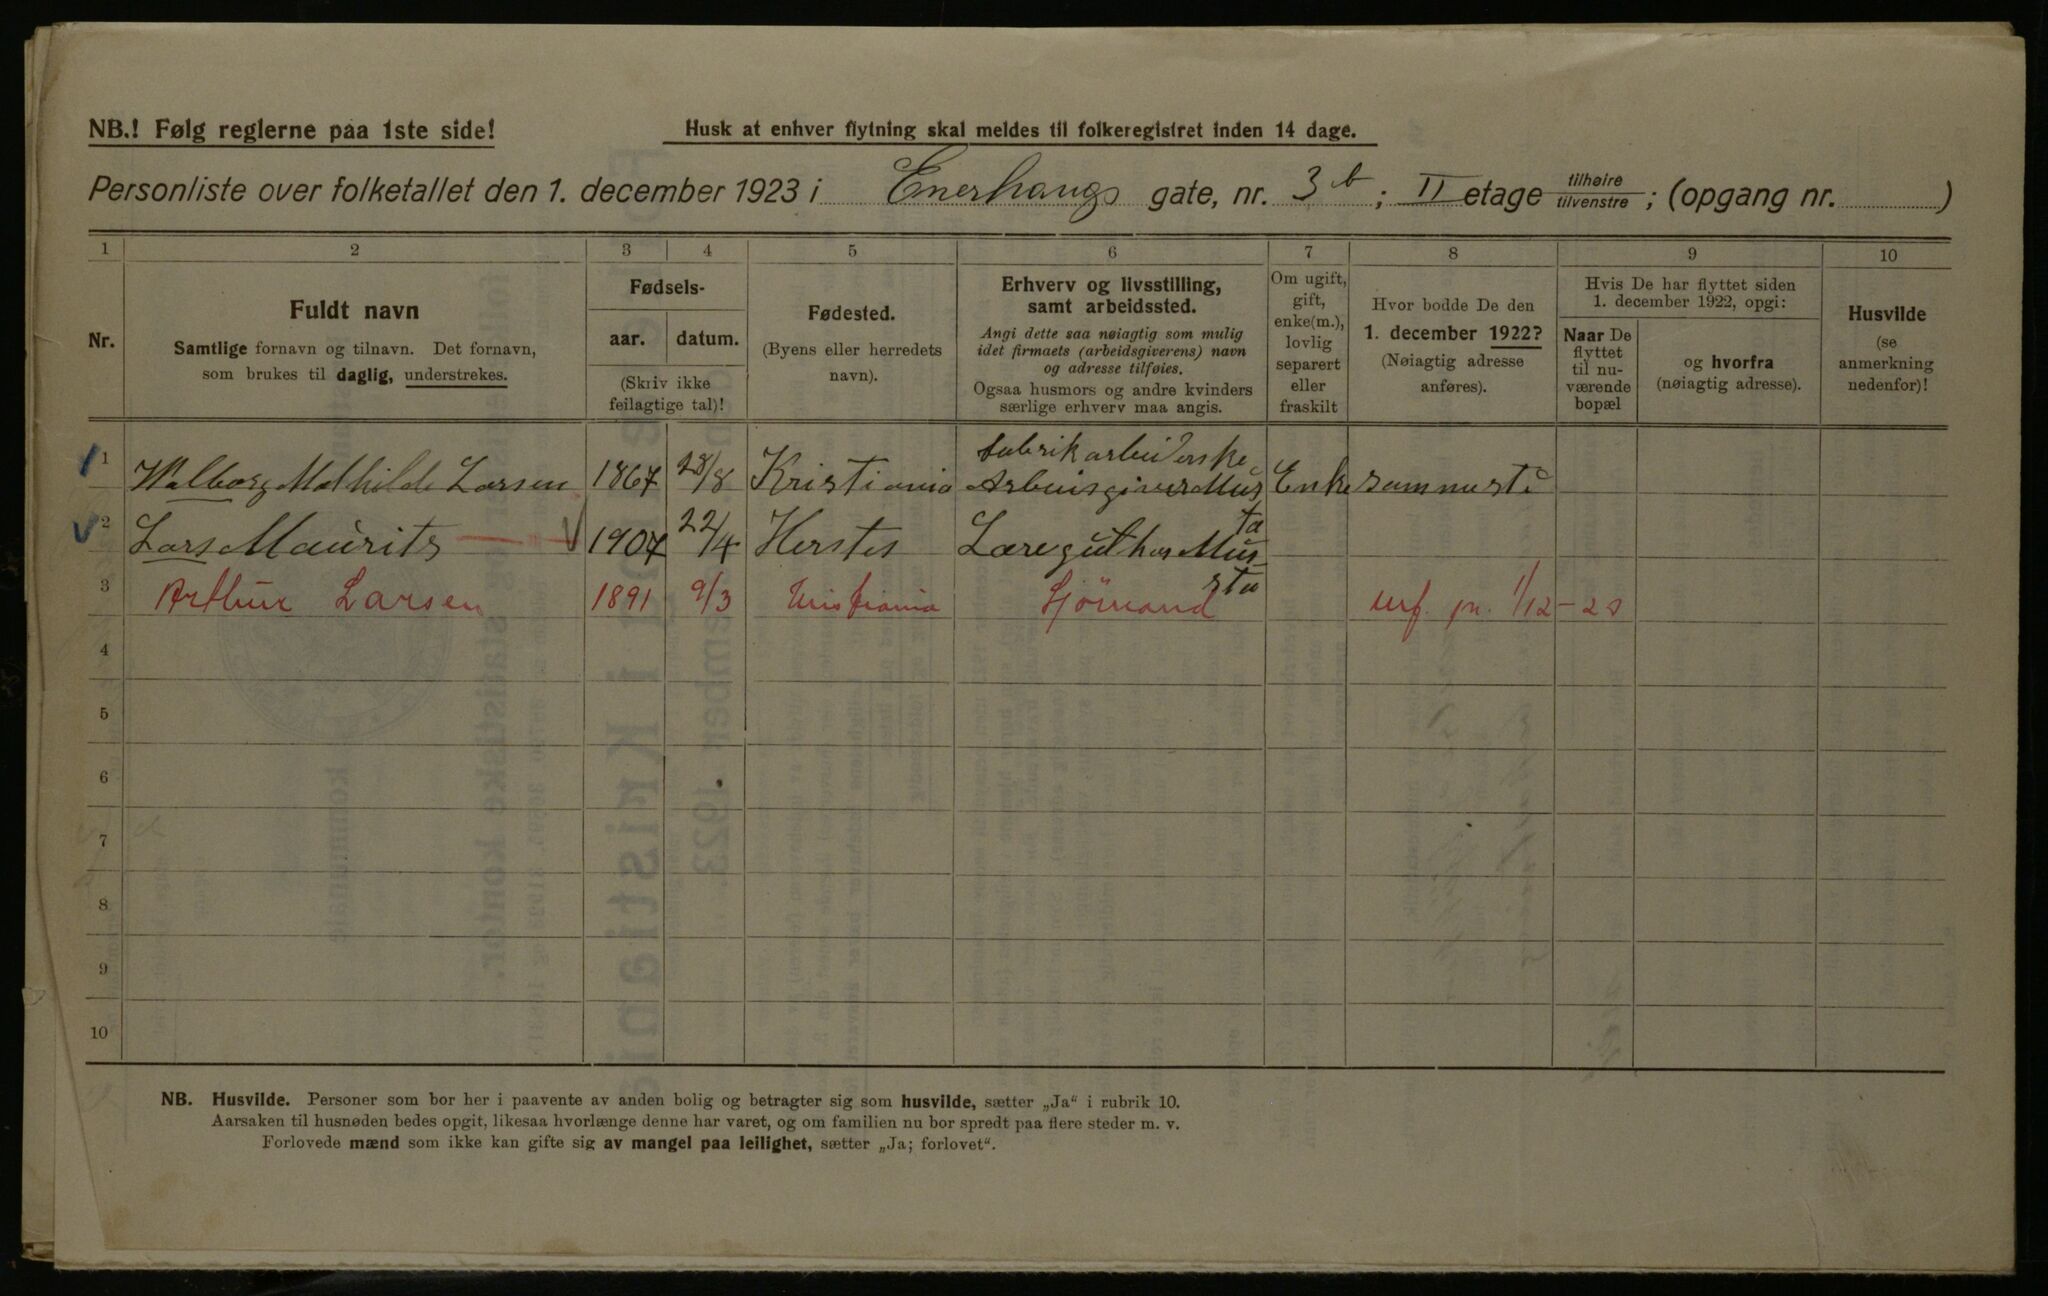 NB.! Følg reglerne paa 1ste side!
Husk at enhver flytning skal meldes til folkeregistret inden 14 dage.
Personliste over folketallet den 1. december 1923 i Enerhaugs gate, nr. 3b; II etage tilhøire tilvenstre; (opgang nr. )
1 2 3 4 5 6 7 8 9 10
Nr.
Fuldt navn
Samtlige fornavn og tilnavn. Det fornavn,
som brukes til daglig, understrekes.
Fødsels-
aar. datum.
(Skriv ikke
feilagtige tal)!
Fødested.
(Byens eller herredets
navn).
Erhverv og livsstilling,
samt arbeidssted.
Angi dette saa nøiagtig som mulig
idet firmaets (arbeidsgiverens) navn
og adresse tilføies.
Ogsaa husmors og andre kvinders
særlige erhverv maa angis.
Om ugift,
gift,
enke(m.),
lovlig
separert
eller
fraskilt
Hvor bodde De den
1. december 1922?
(Nøiagtig adresse
anføres).
Hvis De har flyttet siden
1. december 1922, opgi:
Naar De
flyttet
til nu-
værende
bopæl
og hvorfra
(nøiagtig adresse).
Husvilde
(se
anmerkning
nedenfor)!
fabrikarbeiderske
1 Walborg Mathilde Larsen 1867 28/8 Kristiania Arbeisgiver Mus Enke sammested
ta
2 Lars Maurits 1907 22/4 Læregut hos Mus-
sta
3 Arthur Larsen 1891 9/3 Kristiania Sjömand 1/12-23
4
5
6
7
8
9
10
NB. Husvilde. Personer som bor her i paavente av anden bolig og betragter sig som husvilde, sætter „Ja“ i rubrik 10.
Aarsaken til husnøden bedes opgit, likesaa hvorlænge denne har varet, og om familien nu bor spredt paa flere steder m. v.
Forlovede mænd som ikke kan gifte sig av mangel paa leilighet, sætter „Ja; forlovet“.